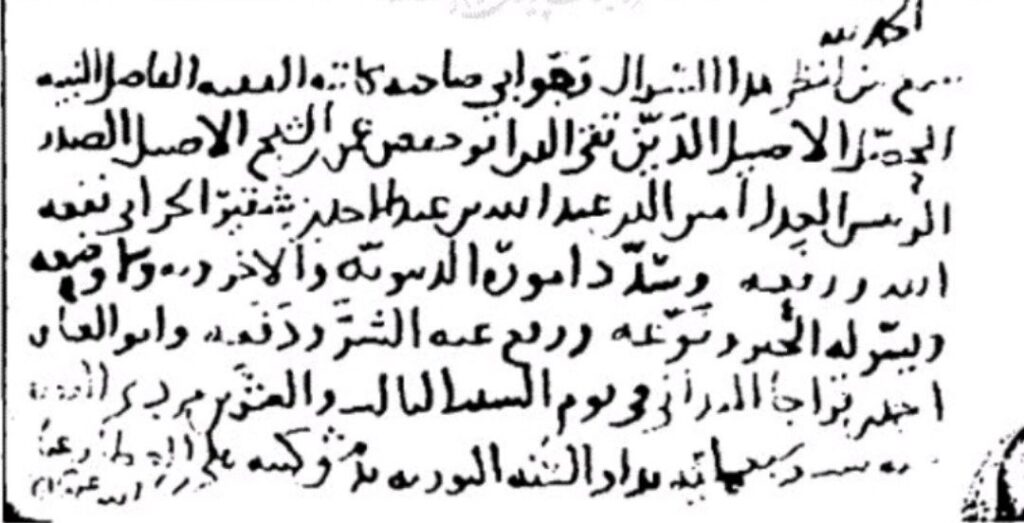 الحمد لله
سمع من لفظي هذا السؤال وجوابي صاحبه كاتبه الفقيه الفاضل النبيه
المحصّل الاصيل الديّن تقي الدين ابو حفص عمر بن الشيخ الاصيل الصدر
الرئيس العدل امين الدين عبد الله بن عبد الاحد بن شقير الحراني نفعه
الله ورفعه وسدّد اموره الدنيوية والاخروية وما وضعه
ويسّر له الخير ونوّعه ورفع عنه الشرَّ ودَفعه وابو العباس
احمد بن في يوم السبت الثالث والعشرين من ذي القعدة
سنة وسبعمائة بدار السُّنَّة النورية بدمشق وكتبه علي بن العطار عفا
الله عنه